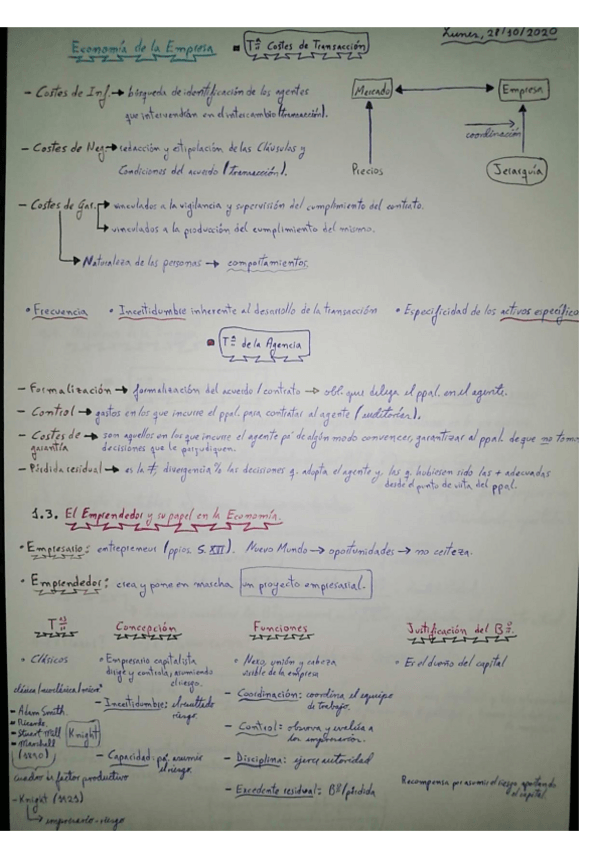 Lunes, 28/10/2020
Economía de la Empresa ▪ Tª Costes de Transacción
- Costes de Inf. → búsqueda de identificación de los agentes
que intervendrían en el intercambio (transacción).
Mercado ↔ Empresa
coordinación
Precios
Jerarquía
- Costes de Neg → redacción y estipulación de las Cláusulas y
Condiciones del acuerdo (transacción).
- Costes de Gar. → vinculados a la vigilancia y supervisión del cumplimiento del contrato.
→ vinculados a la producción del cumplimiento del mismo.
→ Naturaleza de las personas → comportamientos.
• Frecuencia • Incertidumbre inherente al desarrollo de la transacción • Especificidad de los activos específico
▪ Tª de la Agencia
- Formalización → formalización del acuerdo / contrato → obl. que delega el ppal. en el agente.
- Control → gastos en los que incurre el ppal. para contratar al agente (auditorías).
- Costes de garantía → son aquellos en los que incurre el agente pª de algún modo convencer, garantizar al ppal. de que no toma
decisiones que le perjudiquen.
- Pérdida residual → es la ≠, divergencia % las decisiones q. adopta el agente y las q. hubiesen sido las + adecuadas
desde el punto de vista del ppal.
1.3. El Emprendedor y su papel en la Economía.
• Empresario: entrepreneur (ppios. S. XII). Nuevo Mundo → oportunidades → no certeza.
• Emprendedor: crea y pone en marcha un proyecto empresarial.
Tªs Concepción Funciones Justificación del Bº.
• Clásicos
clásica/neoclásica/micro
- Adam Smith.
- Ricardo.
- Stuart Mill
- Marshall
(1890)
Knight
cuadro is factor productivo
- Knight (1921)
→ empresario-riesgo
• Empresario capitalista
dirige y controla, asumiendo
el riesgo.
- Incertidumbre: el resultado
riesgo.
- Capacidad: pª. asumir
el riesgo.
• Nexo, unión y cabeza
visible de la empresa
- Coordinación: coordina el equipo
de trabajo.
- Control: observa y evalúa a
los empresarios.
- Disciplina: ejerce autoridad
- Excedente residual: Bº/pérdida
• Es el dueño del capital
Recompensa por asumir el riesgo aportando
el capital.